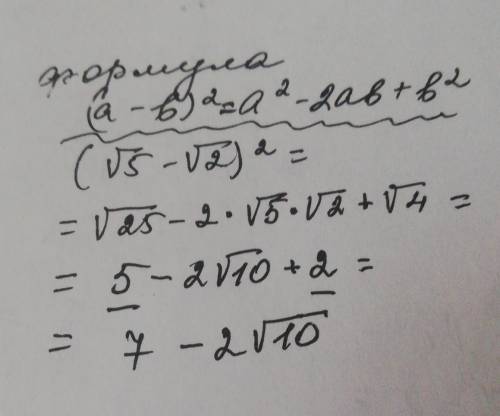 формула
(a - b)² = a² - 2ab + b²
(√5 - √2)² =
= √25 - 2·√5·√2 + √4 =
= 5 - 2√10 + 2 =
= 7 - 2√10